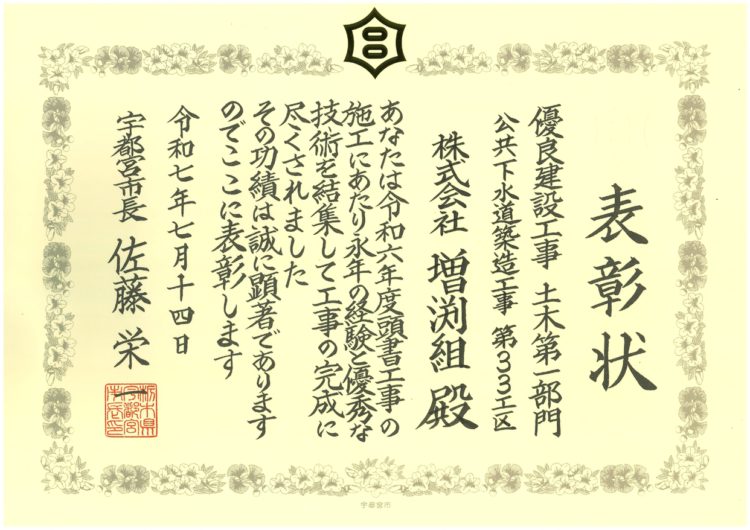 表彰状
優良建設工事 土木第一部門
公共下水道築造工事 第33工区
株式会社 増渕組 殿
あなたは令和六年度頭書工事の
施工にあたり永年の経験と優秀な
技術を結集して工事の完成に
尽くされました
その功績は誠に顕著であります
のでここに表彰します
令和七年七月十四日
宇都宮市長 佐藤栄一
栃木県
宇都宮
市長印
宇都宮市